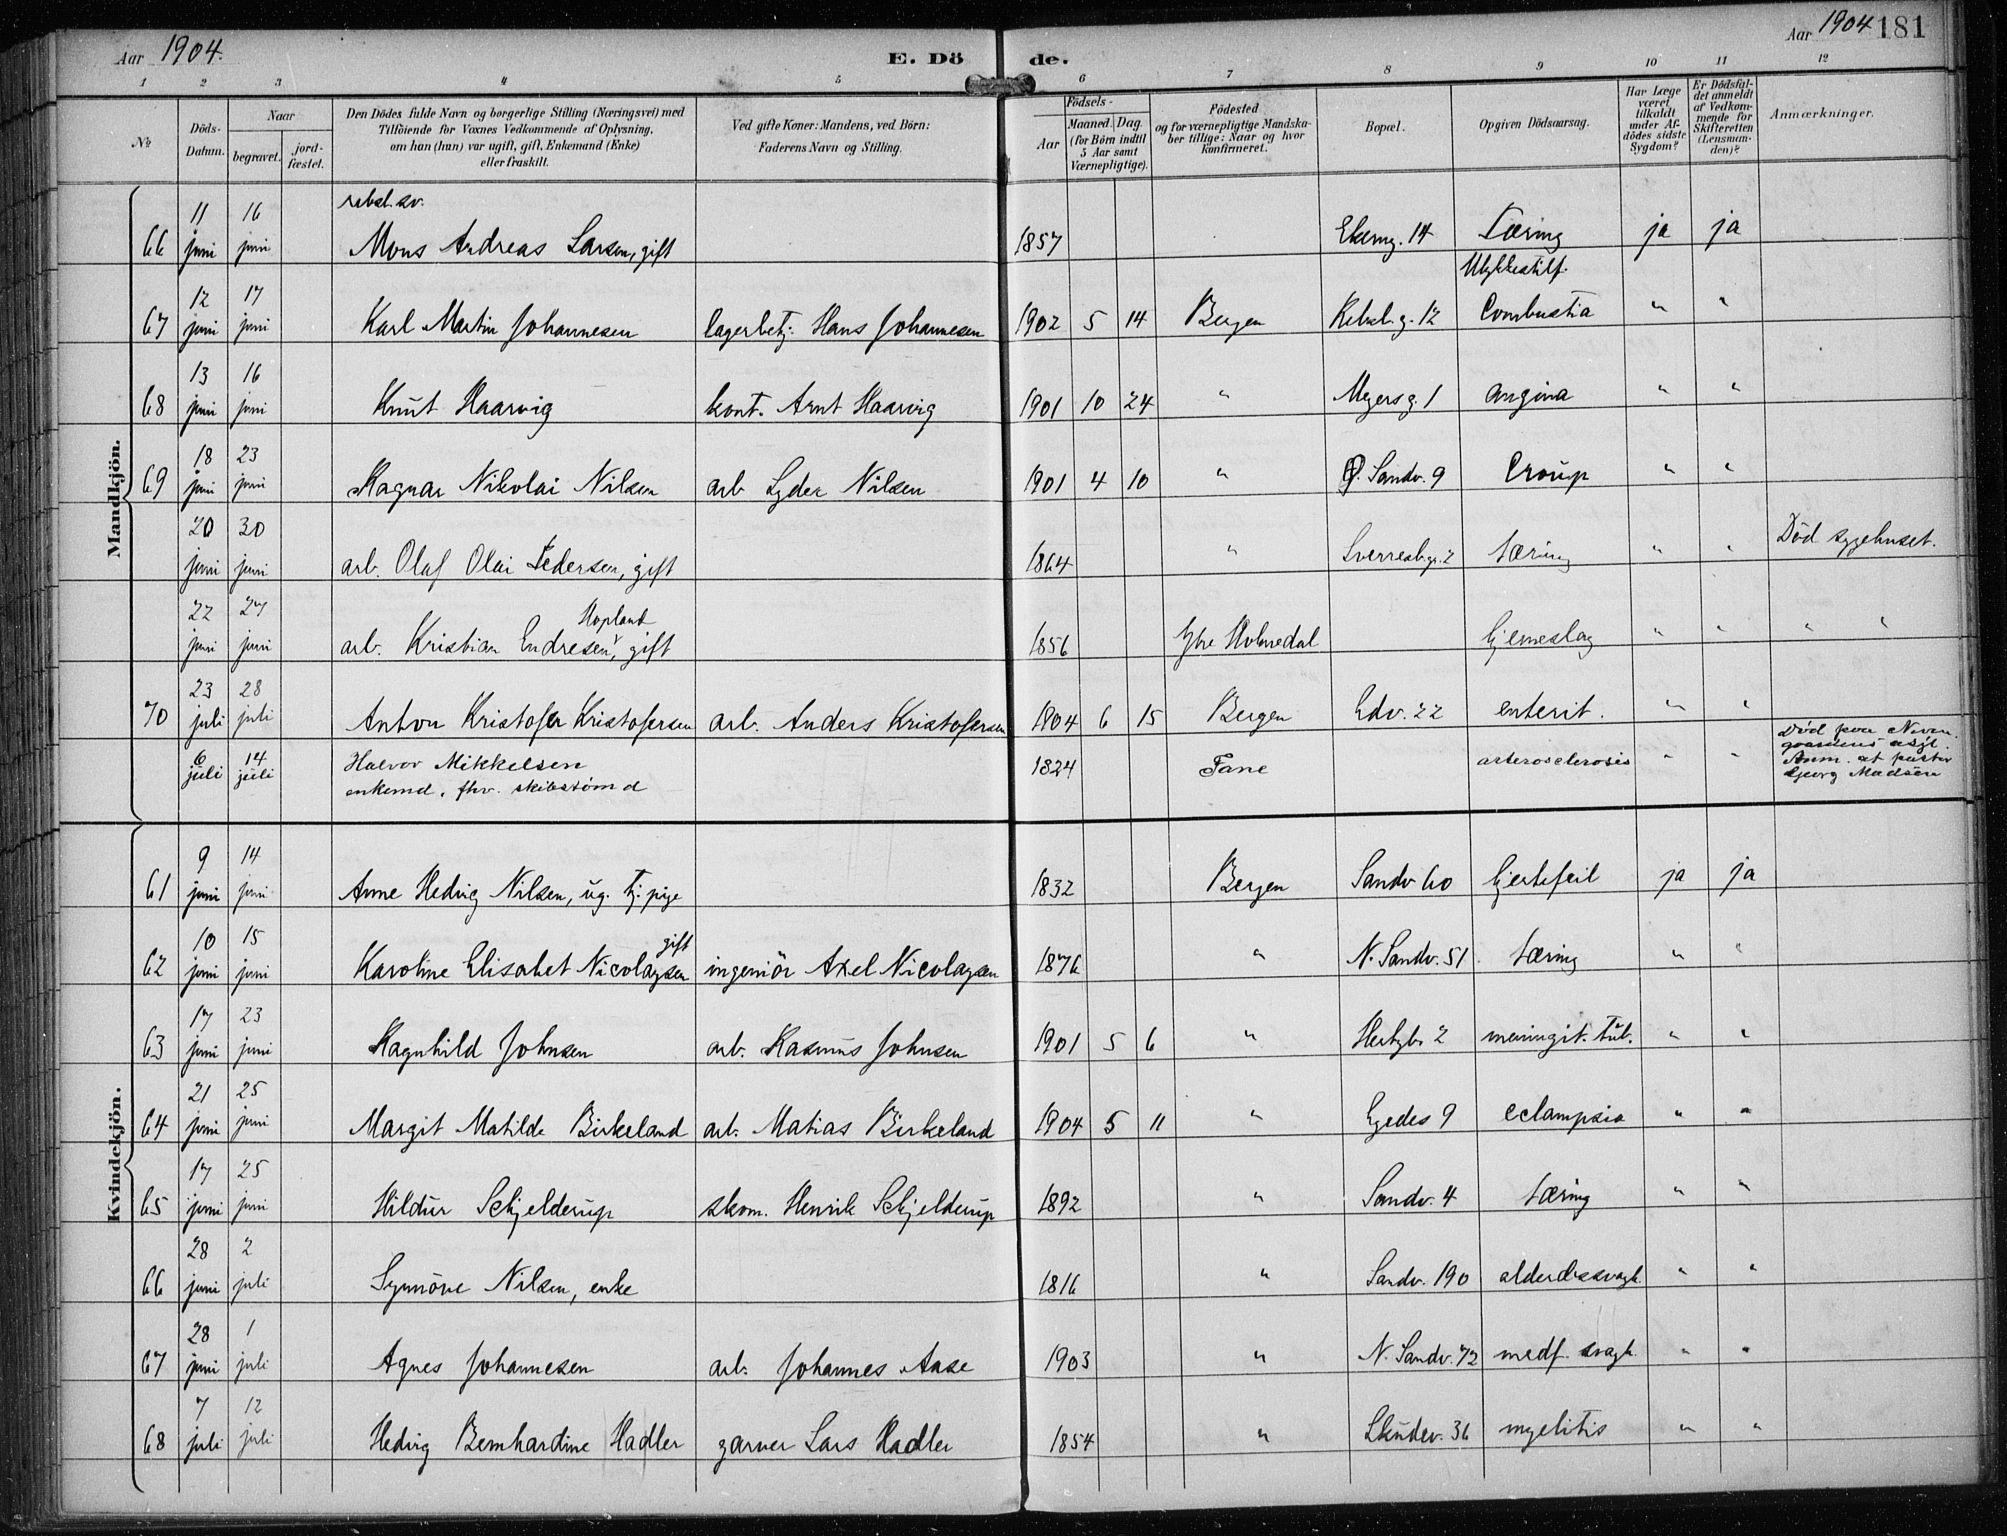 Aar 1904.
E. Dö de.
Aar 1904 181
1 2 3 4 5 6 7 8 9 10 11 12
No
Döds-Datum.
Naar
begravet.
jord-fæstet.
Den Dödes fulde Navn og borgerlige Stilling (Næringsvei) med
Tilföiende for Voxnes Vedkommende af Oplysning,
om han (hun) var ugift, gift, Enkemand (Enke)
eller fraskilt.
Ved gifte Koner: Mandens, ved Börn:
Faderens Navn og Stilling.
Födsels-
Aar
Maaned. Dag.
(for Börn indtil
5 Aar samt
Værnepligtige).
Födested
og for værnepligtige Mandska-
ber tillige: Naar og hvor
konfirmeret.
Bopæl.
Opgiven Dödsaarsag.
Har Læge
været
tilkaldt
under Af-
dödes sidste
Sygdom?
Er Dödsfal-
det anmeldt
af Vedkom-
mende for
Skifteretten
(Lensman-
den)?
Anmærkninger.
Mandkjön.
66 11 juni 16 juni rebsl.sv. Mons Andreas Larsen, gift 1857 Ekerng. 14 Tæring ja ja
67 12 juni 17 juni Karl Martin Johannesen lagerbetj. Hans Johannesen 1902 5 14 Bergen Rebsl.g. 12 Ulykkestilf. Combustia " "
68 13 juni 16 juni Knut Haarvig kont. Arnt Haarvig 1901 10 24 " Meyersg. 1 angina " "
69 18 juni 23 juni Ragnar Nikolai Nilsen arb Lyder Nilsen 1901 4 10 " Ø. Sandv. 9 Croup " "
20 juni 30 juni arb. Olaf Olai Pedersen, gift 1864 " Sverresb.gr. 2 tæring " " Död sygehuset.
22 juni 27 juni arb. Kristian Endresen Hopland, gift 1856 Ytre Holmedal hjerneslag " " " "
70 23 juli 28 juli Anton Kristofer Kristofersen arb. Anders Kristofersen 1904 6 15 Bergen Edv. 22 enterit. " "
6 juli 14 juli Halvor Mikkelsen
enkemd. fhv. skibstømd 1824 Fane arterosclerosis " " Død paa
Anm. at pastor
Georg Madsen
Kvindekjön.
61 9 juni 14 juni Anne Hedvig Nilsen, ug. tj. pige 1832 Bergen Sandv 60 hjertefeil ja ja
62 10 juni 15 juni Karoline Elisabet Nicolaysen gift ingeniör Axel Nicolaysen 1876 " N. Sandv. 51 tæring " "
63 17 juni 23 juni Ragnhild Johnsen arb. Rasmus Johnsen 1901 5 6 " Hertzbr 2 meningit. tub. " "
64 21 juni 25 juni Margit Matilde Birkeland arb. Matias Birkeland 1904 5 11 " Egedes 9 eclampsia " "
65 17 juni 25 juni Hildur Schjelderup skom. Henrik Schjelderup 1892 " Sandv. 4 tæring " "
66 28 juni 2 juli Synnöve Nilsen, enke 1816 " Sandv. 190 alderdssvagh. " "
67 28 juni 1 juli Agnes Johannesen arb. Johannes Aase 1903 " N. Sandv. 72 medf. svagh. " "
68 7 juli 12 juli Hedvig Bernhardine Hadler garver Lars Hadler 1854 " Skudev. 36 myelitis " "